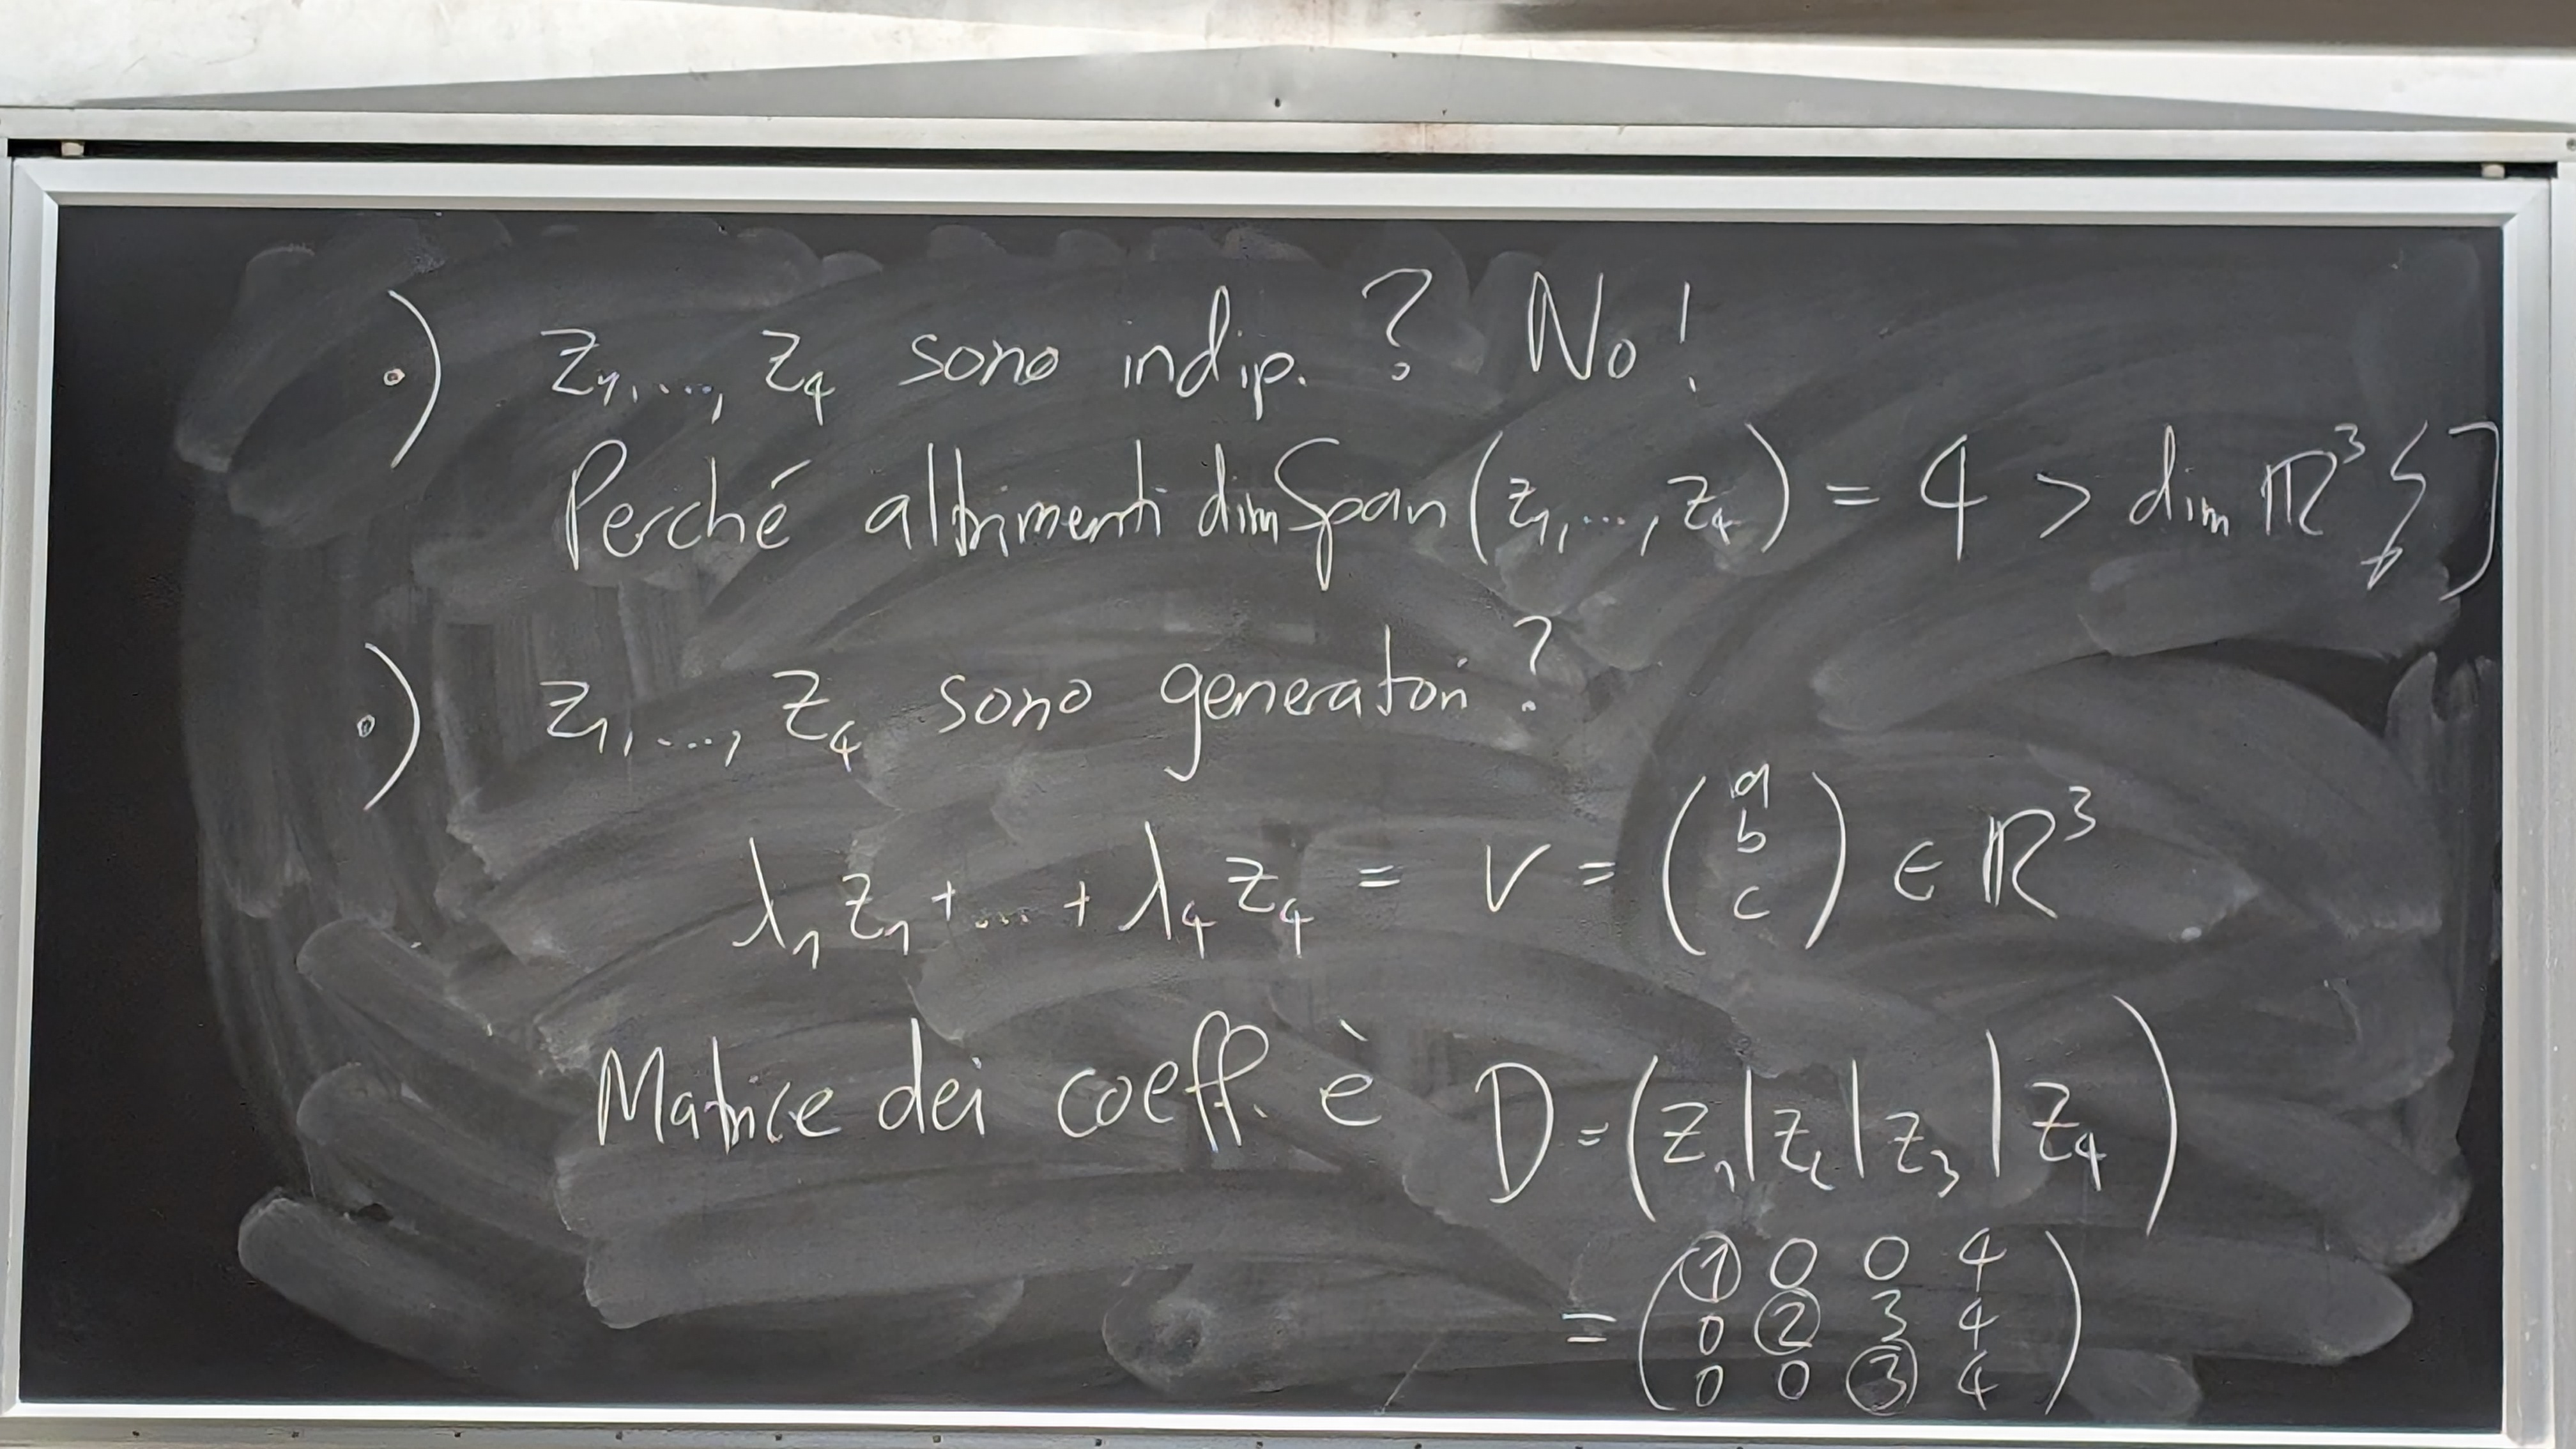 •) z₁,..., z₄ sono indip. ? No!
Perché altrimenti dim Span(z₁,..., z₄) = 4 > dim ℝ³ ↯ ]
•) z₁,..., z₄ sono generatori?
λ₁z₁ + ... + λ₄z₄ = v = (a b c) ∈ ℝ³
Matrice dei coeff. è D = (z₁ | z₂ | z₃ | z₄)
= ( ① 0 0 4
0 ② 3 4
0 0 ③ 4 )